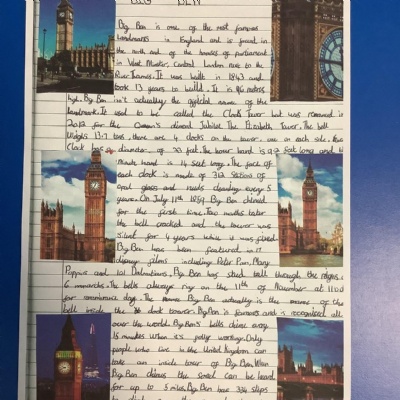 BIG BEN
Big Ben is one of the most famous
landmarks in England and is found in
the north end of the houses of parliament
in West Minster, Central London next to the
River Thames. It was built in 1843 and
took 13 years to build. It is 96 metres
high. Big Ben isn't actually the official name of the
landmark. It used to be called the Clock Tower but was renamed in
2012 for the Queen's dimond Jubilee The Elizabeth Tower. The bell
Weighs 13.7 tons. There are 4 clocks on the tower, one on each side. The
Clock has a diameter of 23 feet. The hour hand is 9.2 feet long and
Minute hand is 14 feet long. The face of
each clock is made of 312 sections of
opal glass and needs cleaning every 5
years. On July 11th 1859 Big Ben chimed
for the first time. Two months later
the bell cracked and the tower was
silent for 4 years while it was fixed
Big Ben have been featured in 17
disney films including Peter Pan, Mary
Poppins and 101 Dalmatians. Big Ben has stud tall through the reigns of
6 monarchs. The bells always ring on the 11th of November at 11:00
for remembrance day. The name Big Ben actually is the name of the
bell inside the clock tower. Big Ben is famous and is recognised all
over the world. Big Ben's bells chime every
15 minutes when it's fully working. Only
people who live in the United Kingdom can
take an inside tour of Big Ben. When
Big Ben chimes the sound can be heard
for up to 5 miles. Big Ben have 334 steps
to